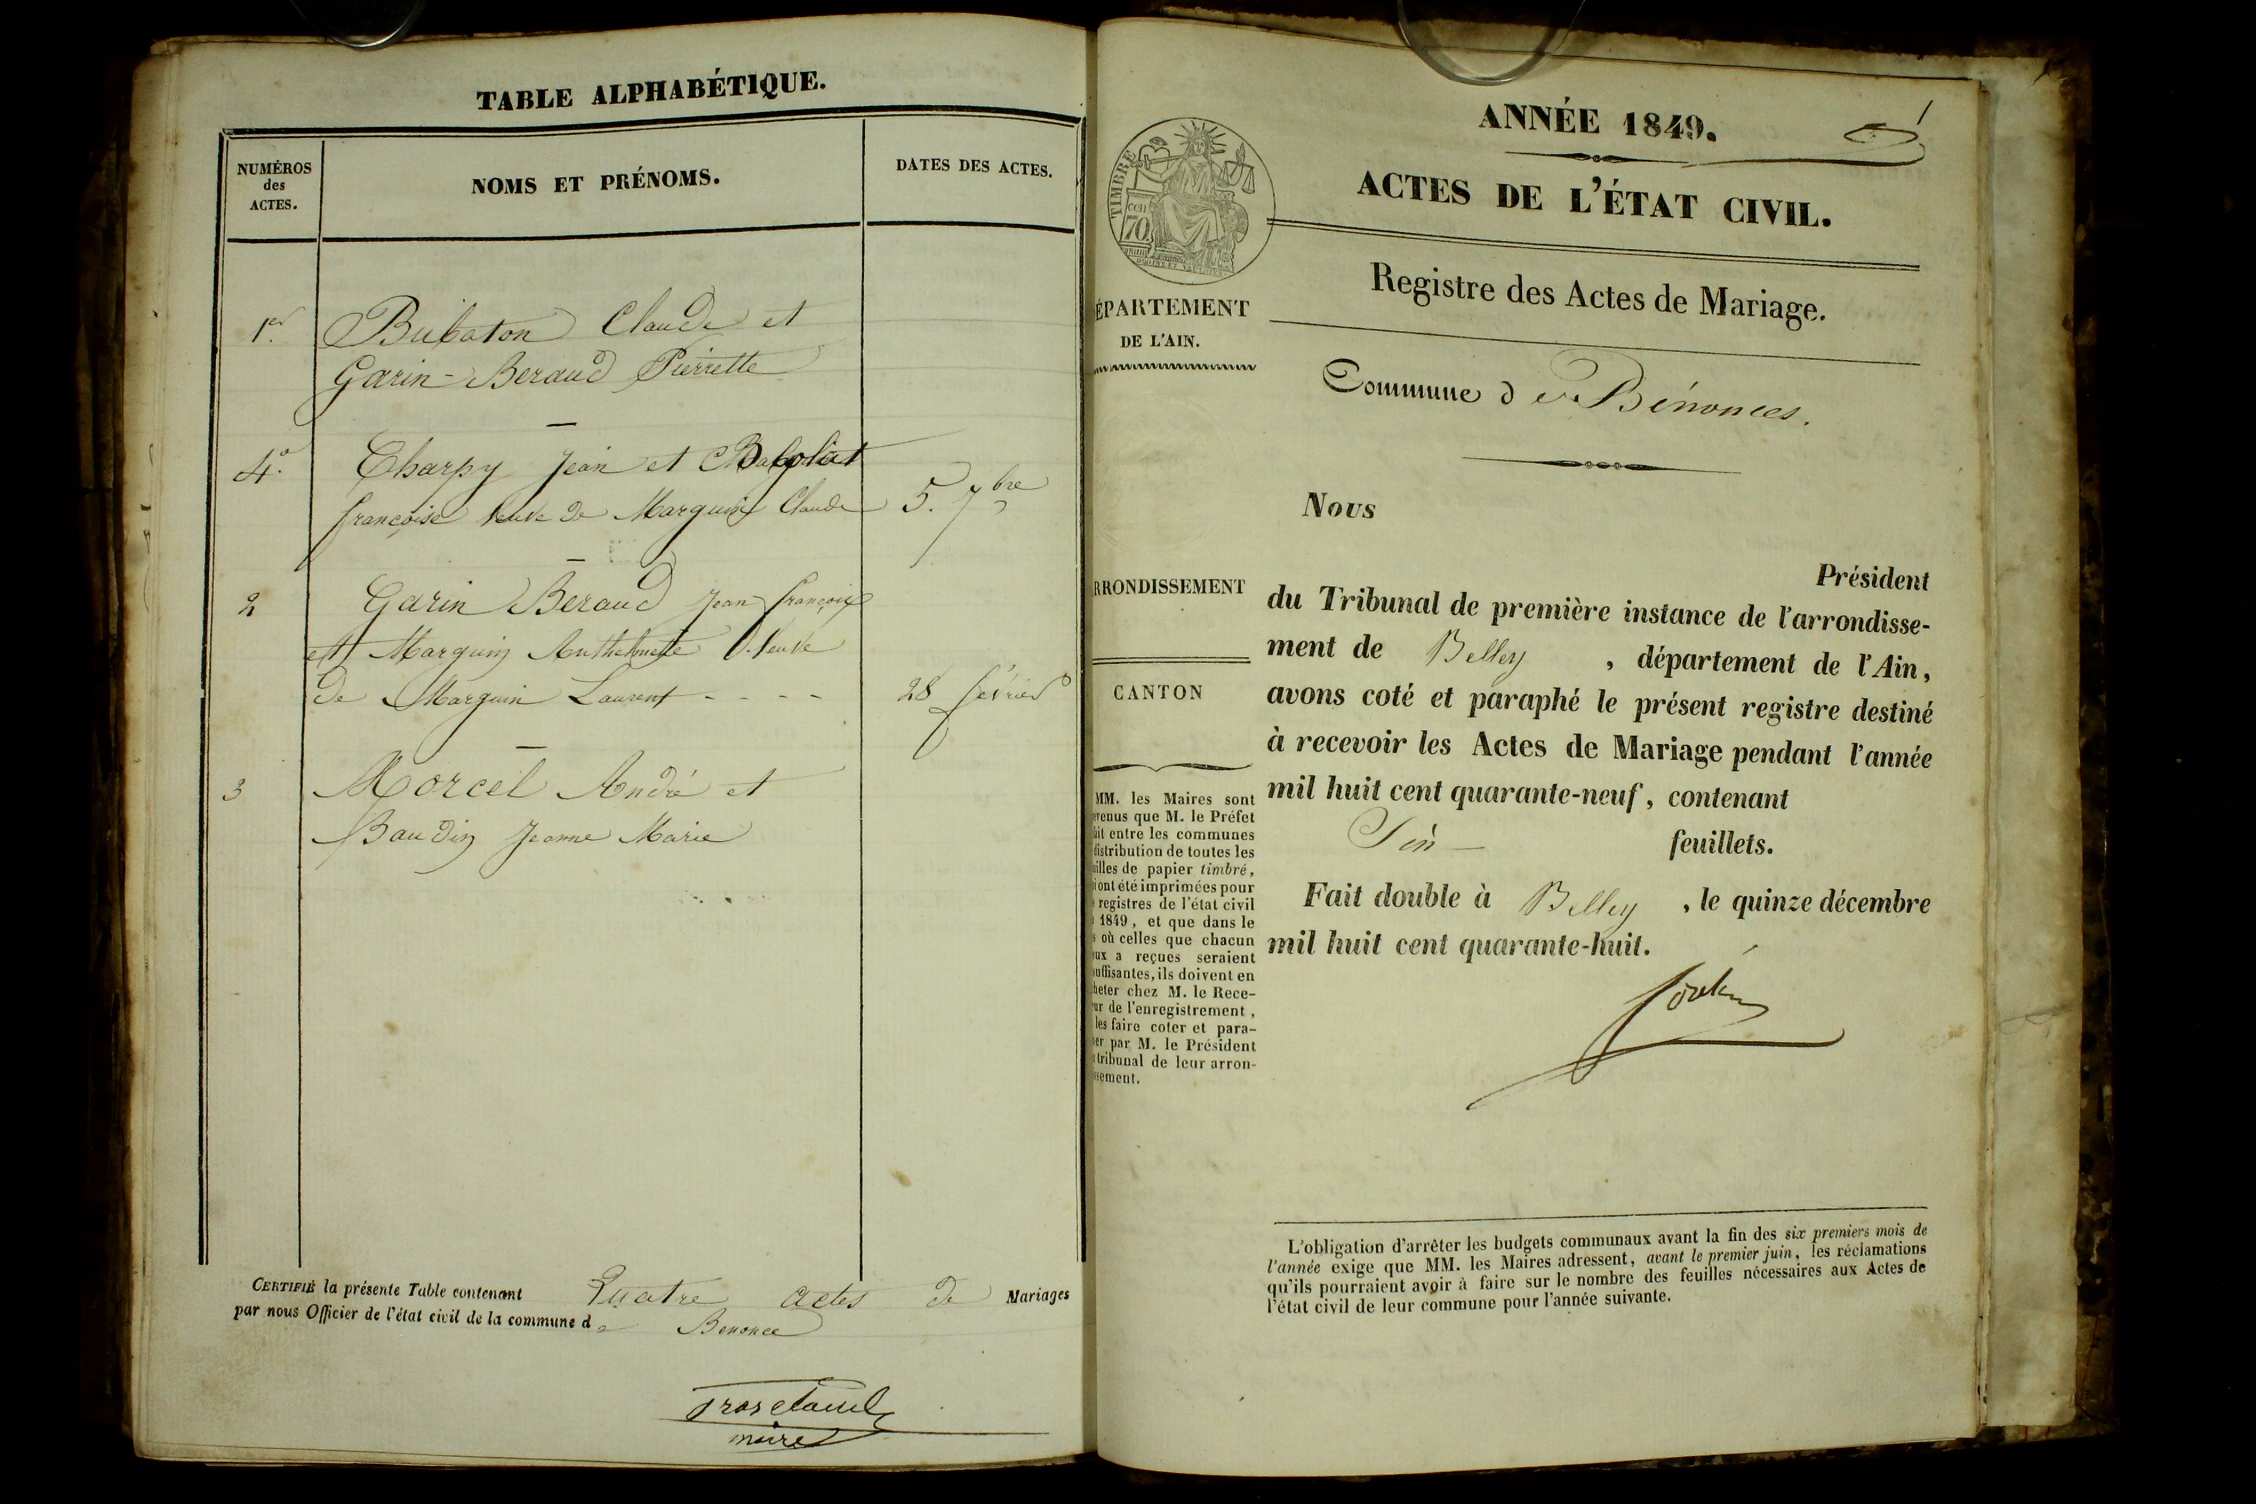 TABLE ALPHABÉTIQUE.
NUMÉROS
des
ACTES.
NOMS ET PRÉNOMS.
DATES DES ACTES.
1er
Bribaton Claude et
Garin-Beraud Pierrette
4°
Charpy Jean et
françoise Veuve de Marguin Claude 5. 7bre
2
Garin Beraud Jean françois
et Marguin Anthelmette Veuve
de Marguin Laurent - - - - 28 février
3
Morcel André et
Baudin Jeanne Marie
CERTIFIÉ la présente Table contenant Quatre actes de Mariages
par nous Officier de l'état civil de la commune de Benonce
maire
ANNÉE 1849.
1
ACTES DE L'ÉTAT CIVIL.
Registre des Actes de Mariage.
TIMBRE
70
ÉPARTEMENT
DE L'AIN.
Commune de Bénonces.
RRONDISSEMENT
CANTON
MM. les Maires sont
evenus que M. le Préfet
ait entre les communes
distribution de toutes les
uilles de papier timbré,
i ont été imprimées pour
registres de l'état civil
1849, et que dans le
s où celles que chacun
ux a reçues seraient
uffisantes, ils doivent en
heter chez M. le Rece-
ur de l'enregistrement,
les faire coter et para-
er par M. le Président
tribunal de leur arron-
ssement.
Nous
Président
du Tribunal de première instance de l'arrondisse-
ment de Belley , département de l'Ain,
avons coté et paraphé le présent registre destiné
à recevoir les Actes de Mariage pendant l'année
mil huit cent quarante-neuf, contenant
feuillets.
Fait double à Belley , le quinze décembre
mil huit cent quarante-huit.
L'obligation d'arrêter les budgets communaux avant la fin des six premiers mois de
l'année exige que MM. les Maires adressent, avant le premier juin, les réclamations
qu'ils pourraient avoir à faire sur le nombre des feuilles nécessaires aux Actes de
l'état civil de leur commune pour l'année suivante.